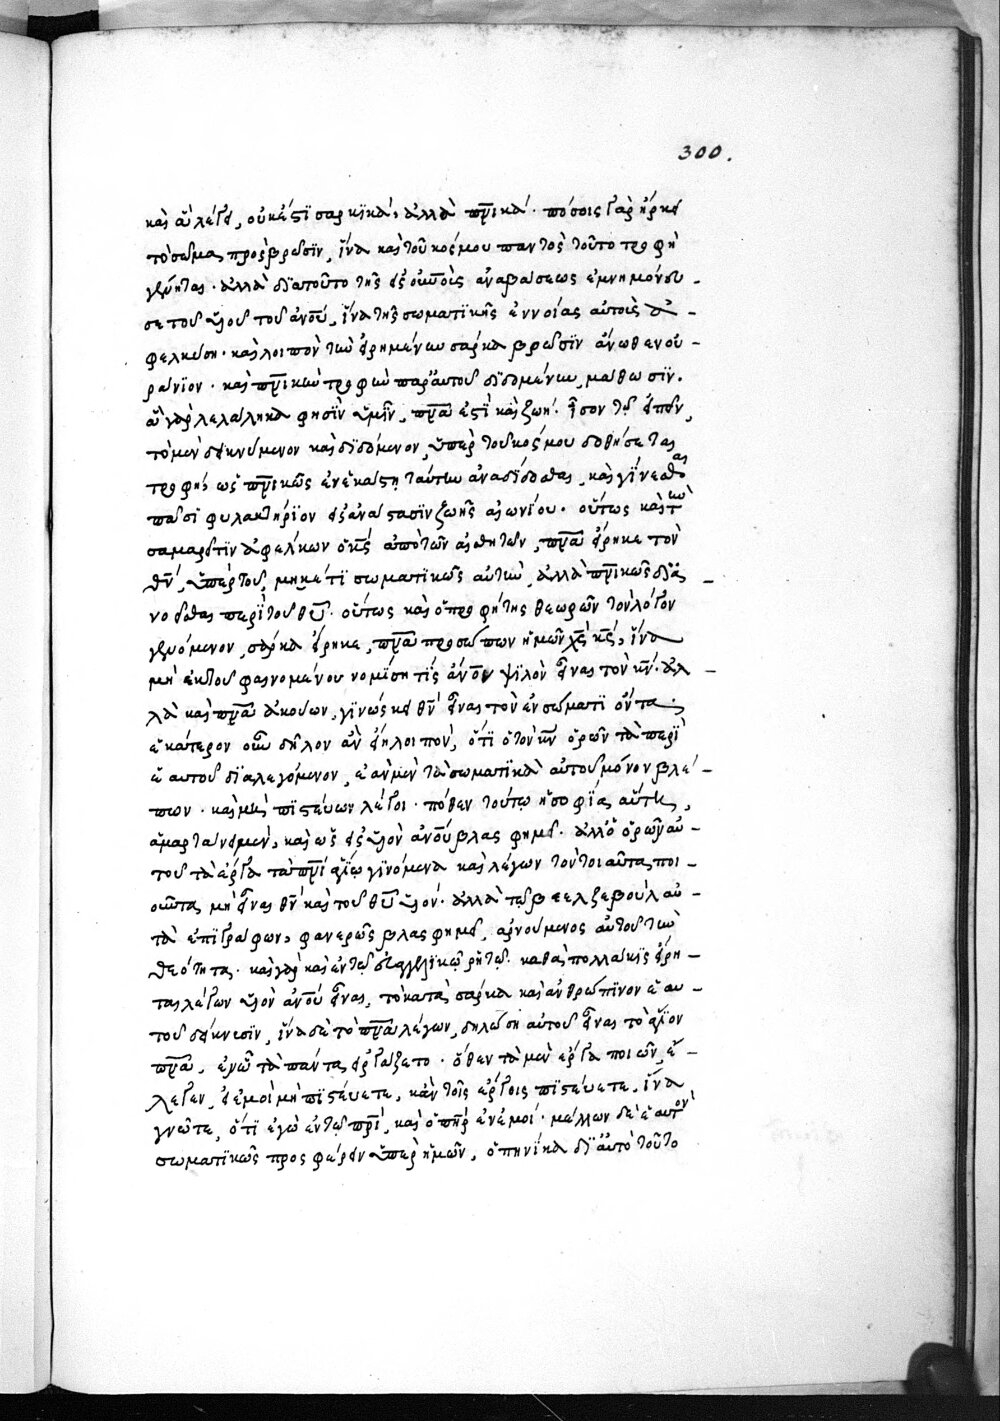 300.
καὶ ἃ λέγει, οὐκ ἔστι σαρκικὰ, ἀλλὰ πνικά. πόσοις γὰρ ἤρκει
τὸ σῶμα πρὸς βρῶσϊν, ἵνα καὶ τοῦ κόσμου παντὸς τοῦτο τροφὴ
γένηται. ἀλλὰ διατοῦτο τῆς εἰς οὐνοὺς ἀναβάσεως ἐμνημόνευ-
σε τοῦ υἱοῦ τοῦ ἀνου, ἵνα τῆς σωματικῆς ἐννοίας αὐτοὺς ἀ-
φελκύσῃ. καὶ λοιπὸν τὴν εἰρημένην σάρκα βρῶσϊν ἄνωθεν οὐ-
ράνϊον. καὶ πνικὴν τροφὴν παρ' αὐτοῦ διδομένην, μάθωσιν.
ἃ γὰρ λελάληκα φησὶν ὑμῖν, πνα ἐστὶ καὶ ζωή. ἶσον τῷ εἰπεῖν,
τὸ μὲν δεικνύμενον καὶ διδόμενον, ὑπὲρ τοῦ κόσμου δοθήσεται
τροφή, ὡς πνικῶς ἐν ἑκάστῃ ταύτην ἀναδίδοσθαι, καὶ γίνεσθαι
πᾶσι φυλακτήριον εἰς ἀνάστασιν ζωῆς αἰωνίου. οὕτως καὶ τὴν
σαμαρεῖτιν ἀφέλκων ὁ κς ἀπὸ τῶν αἰσθητῶν, πνα εἴρηκε τὸν
θν, ὑπὲρ τοῦ, μηκέτι σωματικῶς αὐτὴν, ἀλλὰ πνικῶς δια-
νοεῖσθαι περὶ τοῦ θυ. οὕτως καὶ ὁ προφήτης θεωρῶν τὸν λόγον
γενόμενον, σάρκα εἴρηκε, πνα προσώπου ἡμῶν χς κς, ἵνα
μὴ ἐκ τοῦ φαινομένου νομίσῃ τὶς ἄνον ψιλὸν εἶναι τὸν κν. ἀλ-
λὰ καὶ πνα ἀκούων, γινώσκει θν εἶναι τὸν ἐν σώματι ὄντα,
ἑκάτερον οὖν δῆλον ἂν εἴη λοιπόν, ὅτι ὁ τὸν κν ὁρῶν τὰ περὶ
ἑαυτοῦ διαλεγόμενον, ἐὰν μὲν τὰ σωματικὰ αὐτοῦ μόνον βλέ-
πων. καὶ μὴ πιστεύων λέγοι. πόθεν τούτῳ ἡ σοφία αὕτη,
ἁμαρτάνει μὲν, καὶ ὡς εἰς υἱὸν ἀνου βλασφημεῖ. ἀλλ' ὁ ὁρῶν αὐ-
τοῦ τὰ ἔργα τὰ πνι ἁγίῳ γινόμενα καὶ λέγων τὸν τοιαῦτα ποι-
οῦντα μὴ εἶναι θν καὶ τοῦ θυ υἱόν. ἀλλὰ τῷ βεελζεβοὺλ αὐ-
τὰ ἐπιγράφων, φανερῶς βλασφημεῖ, ἀρνούμενος αὐτοῦ τὴν
θεότητα. καὶ γὰρ καὶ ἐν τῷ εὐαγγελικῷ ῥητῷ. καθὰ πολλάκις εἴρη-
ται λέγων υἱὸν ἀνου εἶναι, τὸ κατὰ σάρκα καὶ ἀνθρώπινον ἑαυ-
τοῦ δείκνυσϊν, ἵνα δὲ τὸ πνα λέγων, δηλώσῃ αὐτοῦ εἶναι τὸ ἅγιον
πνα. ἐν ᾧ τὰ πάντα εἰργάζετο. ὅθεν τὰ μὲν ἔργα ποιῶν, ἔ-
λεγεν, εἰ ἐμοὶ μὴ πιστεύετε, κἂν τοῖς ἔργοις πιστεύετε. ἵνα
γνῶτε, ὅτι ἐγὼ ἐν τῷ πρι, καὶ ὁ πηρ ἐν ἐμοί. μέλλων δὲ ἑαυτὸν
σωματικῶς προσφέρειν ὑπὲρ ἡμῶν, ὁπηνίκα δι' αὐτὸ τοῦτο